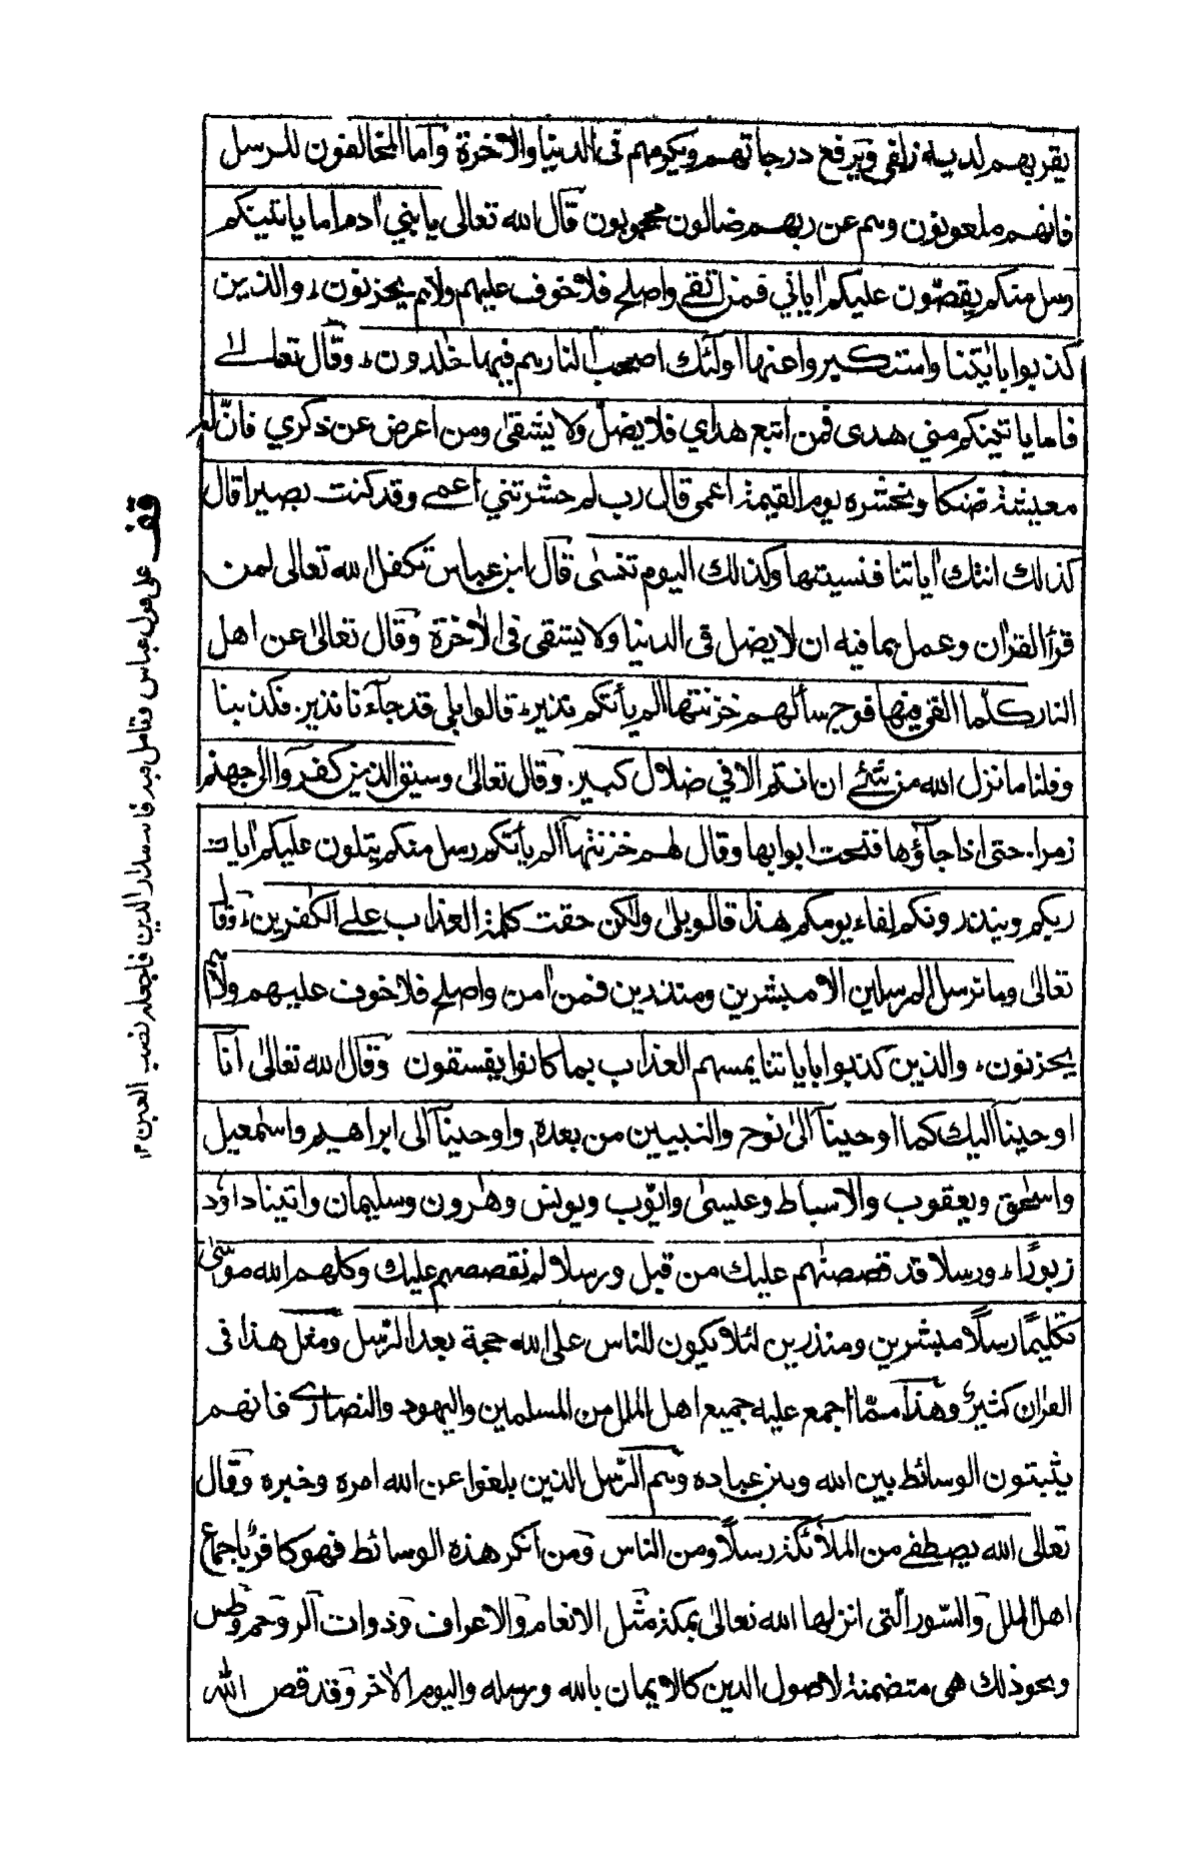 يقربهم لديه زلفى ويرفع درجاتهم ويكرمهم فى الدنيا والاخرة وآما المخالفون للرسل
فانهم ملعونون وهم عن ربهم ضالون محجوبون قال الله تعالى يابني ادم اما ياتينكم
رسل منكم يقصّون عليكم اٰياتي فمن اتقى واصلح فلا خوف عليهم ولا هم يحزنون، والذين
كذبوا باٰيٰتنا واستكبروا عنها اولٰئك اصحٰب النار هم فيها خٰلدون، وقال تعالى
فاما ياتينكم مني هدى فمن اتبع هداي فلا يضل ولا يشقىٰ ومن اعرض عن ذكري فانّ له
معيشة ضنكا ونحشره يوم القيمة اعمى قال رب لم حشرتني اعمى وقد كنت بصيرا قال
كذلك اتتك اٰياتنا فنسيتها وكذلك اليوم تنسٰى قال ابن عباس تكفل الله تعالى لمن
قرأ القراٰن وعمل بما فيه ان لا يضل فى الدنيا ولا يشقى فى الاٰخرة وقال تعالىٰ عن اهل
النار كلّما القى فيها فوج سألهم خزنتها الم يأتكم نذير، قالوا بلى قد جآءنا نذير. فكذبنا
وقلنا ما نزل الله من شئ ان انتم الا في ضلال كبير. وقال تعالىٰ وسيق الذين كفروا الى جهنم
زمرا. حتى اذا جآؤها فتحت ابوابها وقال لهم خزنتهآ الم يأتكم رسل منكم يتلون عليكم اٰيات
ربكم وينذرونكم لقاء يومكم هذا قالو بلىٰ ولكن حقت كلمة العذاب على الكٰفرين، وقال
تعالىٰ وما نرسل المرسلين الا مبشرين ومنذرين فمن اٰمن واصلح فلا خوف عليهم ولا هم
يحزنون، والذين كذبوا باٰياتنا يمسهم العذاب بما كانوا يفسقون وقال الله تعالىٰ انآ
اوحينآ اليك كما اوحينآ الىٰ نوح والنبيين من بعده, واوحينآ الى ابراهيم واسمٰعيل
واسحٰق ويعقوب والاسباط وعيسىٰ وايّوب ويونس وهٰرون وسليمان واتينا داوٗد
زبورًا، ورسلا قد قصصنٰهم عليك من قبل ورسلا لم نقصصهم عليك وكلهم الله موسٰى
تكليمًا رسلًا مبشرين ومنذرين لئلا يكون للناس على الله حجة بعد الرّسل ومثل هذا فى
القراٰن كثيرٌ وهٰذا ممّا اجمع عليه جميع اهل الملل من المسلمين واليهود والنصارى فانهم
يثبتون الوسائط بين الله وبين عباده وهم الرّسل الذين بلغوا عن الله امره وخبره وقال
تعالى الله يصطفي من الملآئكة رسلًا ومن الناس ومن انكر هذه الوسائط فهو كافرٌ باجماع
اهل الملل والسّور الّتى انزلها الله تعالىٰ بمكة مثل الانعام والاعراف وذوات الر وحم وطس
ونحو ذلك هى متضمنة لاصول الدين كالايمان بالله ورسله واليوم الاٰخر وقد قص الله
قف على قول عباس وتامل فيه فانه مدار الدين فاجعله نصب العين ١٢